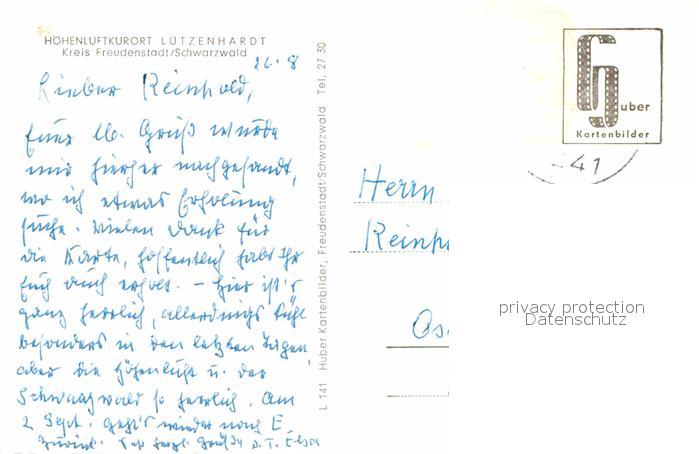 HÖHENLUFTKURORT LÜTZENHARDT
Kreis Freudenstadt/Schwarzwald
26.8
Lieber Reinhold,
Euer lb. Gruß wurde
mir hierher nachgesandt,
wo ich etwas Erholung
suche. Vielen Dank für
die Karte, hoffentlich habt Ihr
Euch auch erholt. – Hier ist's
ganz herrlich, allerdings kühl
besonders in den letzten Tagen
aber die Höhenluft u. der
Schwarzwald so herrlich. Am
2 Sept. geht's wieder nach E.
zurück. herzl. Grüße D. T. Elsa
L 141 Huber Kartenbilder, Freudenstadt/Schwarzwald Tel. 27 30
Huber
Kartenbilder
41
Herrn
Reinh
Os
privacy protection
Datenschutz